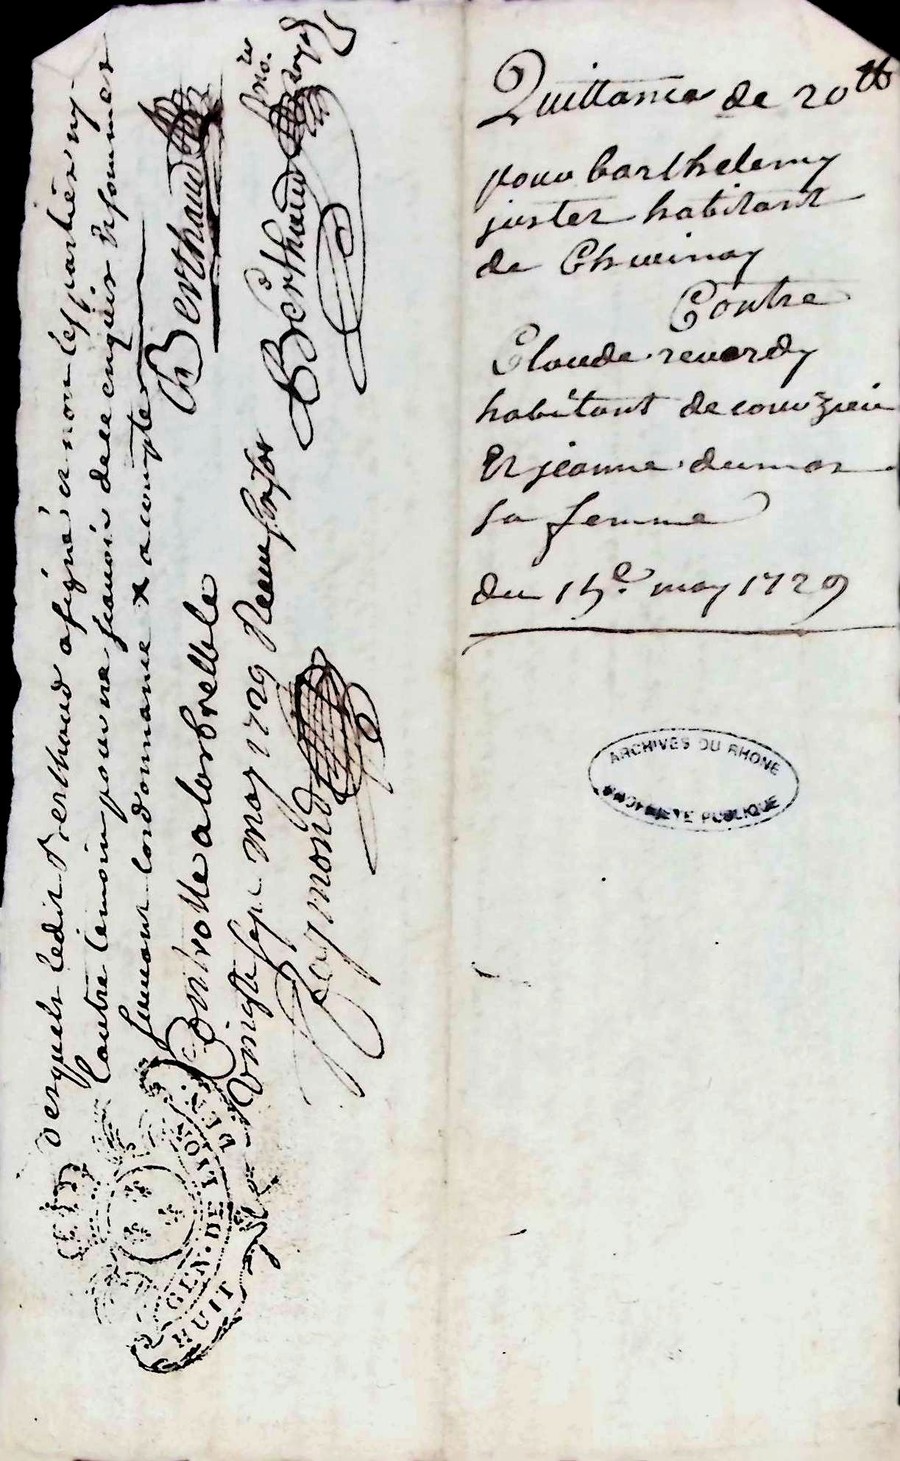 Quittance de 20 tt
pour barthelemy
juster habitant
de Chevinay
Contre
Claude reverdy
habitant de courzieu
Et jeanne dumas
sa femme
du 15e. may 1729
ARCHIVES DU RHONE
PROPRIETE PUBLIQUE
desquels ledit Berthaud a signé et non les parties ny
lautre temoin pour ne scavoir de ce enquis et sommes
suivant lordonnance a compte
Berthaud
Controlle a larbrelle le
vingt sept may 1729 Receu
Berthaud
Raymond
GEN · DE LYON
HUIT DEN